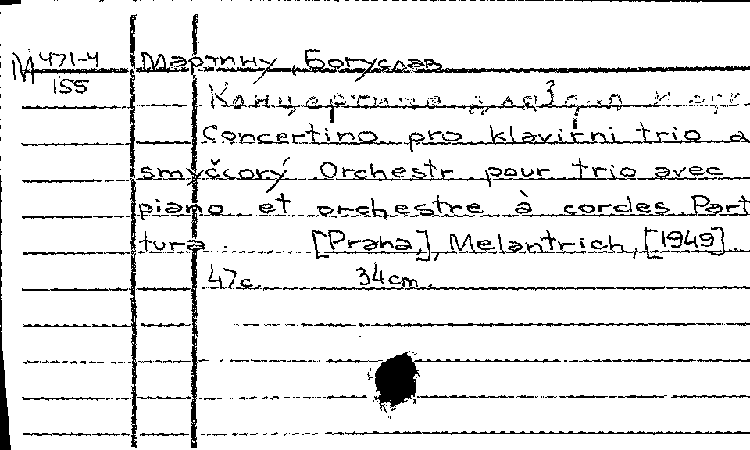 М 471-4
155
Мартину, Богуслав
Концертино для 3 ф-п и орк.
Concertino pro klavírní trio a
smyčcorý Orchestr pour trio avec
piano et orchestre à cordes. Part
tura. [Praha], Melantrich, [1949].
47c. 34cm.